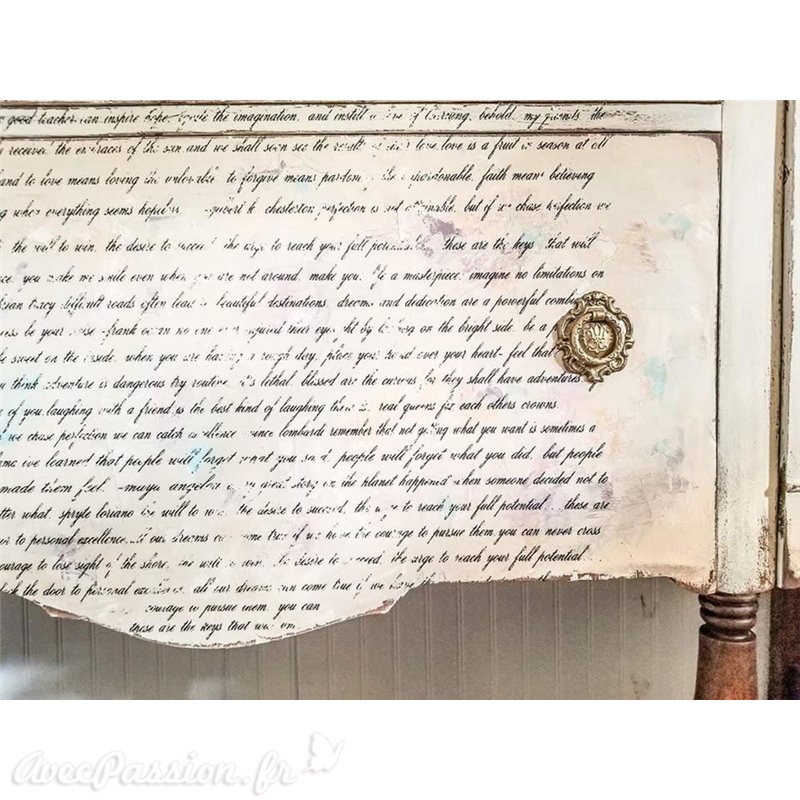 good teacher can inspire hope, ignite the imagination, and instill a love of learning. behold, my friends, the
received the embraces of the sun and we shall soon see the results of their love. love is a fruit in season at all
and to love means loving the unlovable. to forgive means pardoning the unpardonable. faith means believing
when everything seems hopeless - gilbert k. chesterton perfection is not attainable, but if we chase perfection we
the will to win, the desire to succeed, the urge to reach your full potential... these are the keys that will
you make me smile even when you are not around. make you life a masterpiece; imagine no limitations on
tracy difficult roads often lead to beautiful destinations. dreams and dedication are a powerful
be your -frank ocean no one ever injured their eyesight by looking on the bright side. be a
sweet on the inside. when you are having a rough day, place your hand over your heart- feel that
think adventure is dangerous try routine, it's lethal. blessed are the curious for they shall have adventures
of you. laughing with a friend is the best kind of laughing there is. real queens fix each others crowns
we chase perfection we can catch excellence -vince lombardi remember that not getting what you want is sometimes a
ive learned that people will forget what you said, people will forget what you did, but people
made them feel. -maya angelou every great story on the planet happened when someone decided not to
matter what. spryte loriano the will to win, the desire to succeed, the urge to reach your full potential... these are
to personal excellence. all our dreams can come true if we have the courage to pursue them. you can never cross
courage to lose sight of the shore. the will to win, the desire to succeed, the urge to reach your full potential
the door to personal excellence. all our dreams can come true if we have the
courage to pursue them. you can
these are the keys that will
AvecPassion.fr